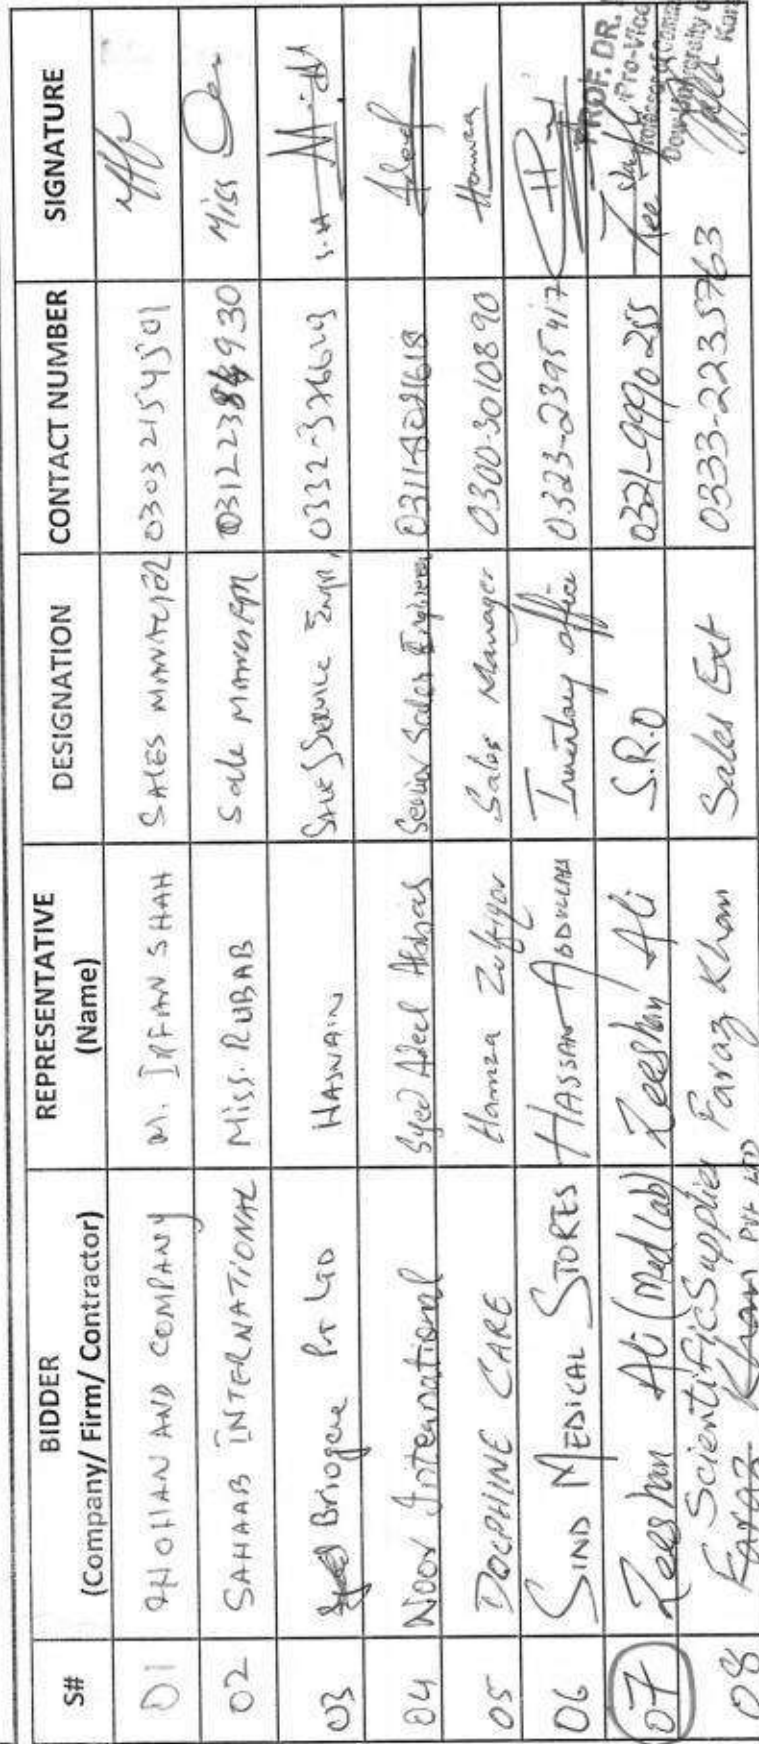 S# BIDDER (Company/ Firm/ Contractor) REPRESENTATIVE (Name) DESIGNATION CONTACT NUMBER SIGNATURE
01 CHOHAN AND COMPANY M. IRFAN SHAH SALES MANAGER 0303 2154501
02 SAHAAB INTERNATIONAL Miss. RUBAB Sale MANAGER 03122384930 Miss
03 Briogene Pvt LTD HASNAIN Sale/Service Engr.
04 Noor International Syed Adeel Senior Sales Engineer Adeel
05 DOLPHINE CARE Hamza Zulfiqar Sales Manager 0300-3010890 Hamza
06 SIND MEDICAL STORES HASSAN ABDULLAH Inventory office 0323-2395417
07 Zeeshan Ali (Med Lab) Zeeshan Ali S.R.O 0321-9990255 Zee
08 Scientific Supplies PVT LTD Faraz Khan Faraz Khan Sales Ext 0333-2235763
PROF. DR.
Pro-Vice